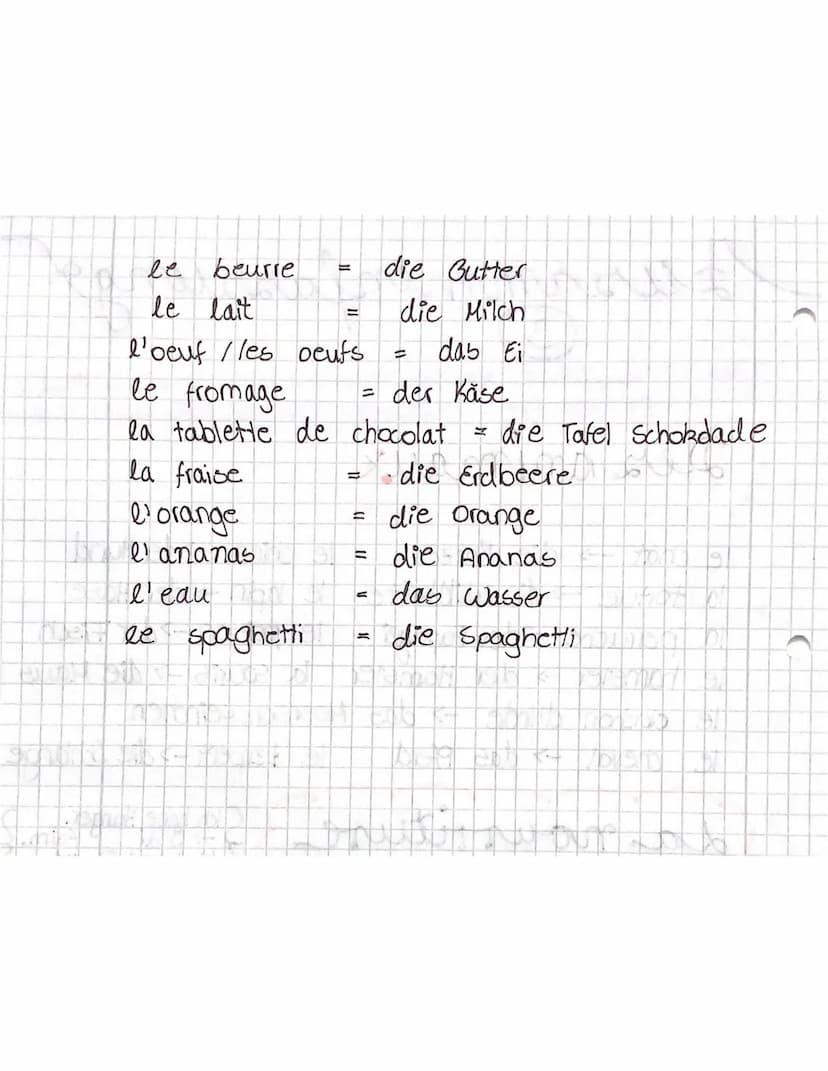 le beurre = die Butter
le lait = die Milch
l'oeuf / les oeufs = das Ei
le fromage = der Käse
la tablette de chocolat = die Tafel Schokdade
la fraise = die Erdbeere
l'orange = die Orange
l'ananas = die Ananas
l'eau = das Wasser
le spaghetti = die Spaghetti